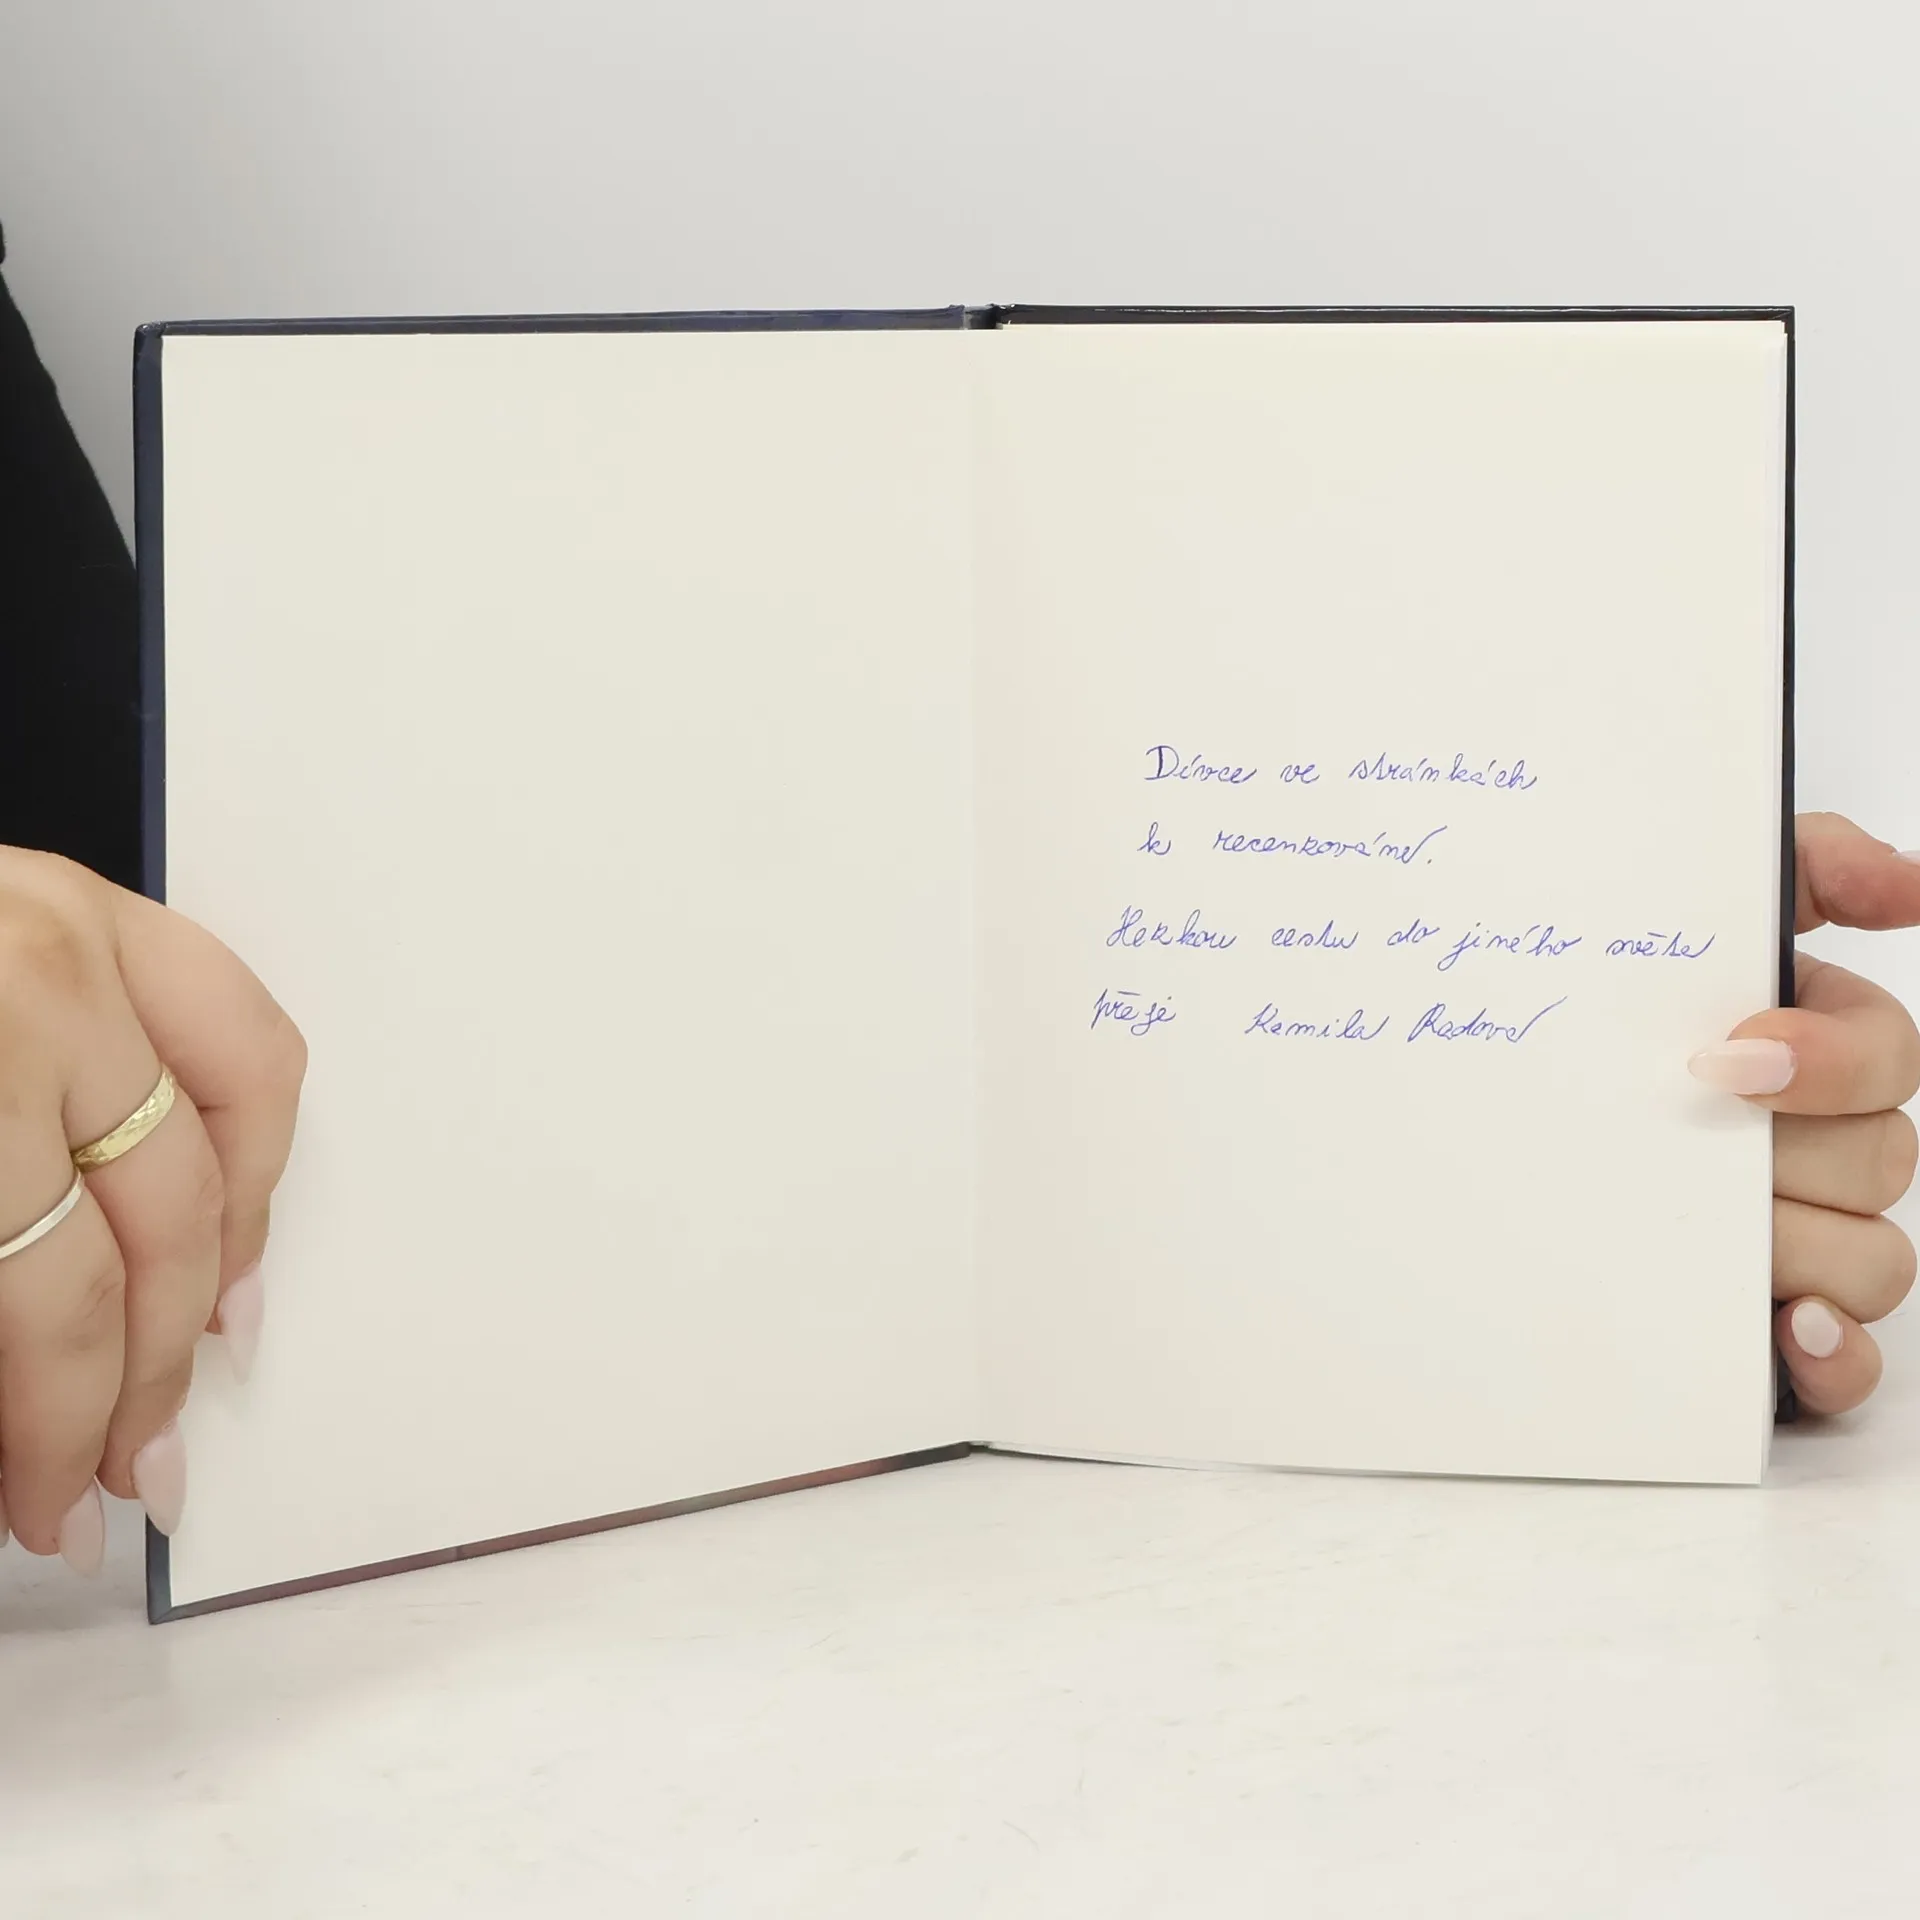 Dívce ve stránkách
k recenzování.
Hezkou cestu do jiného světa
přeje Kamila Radová